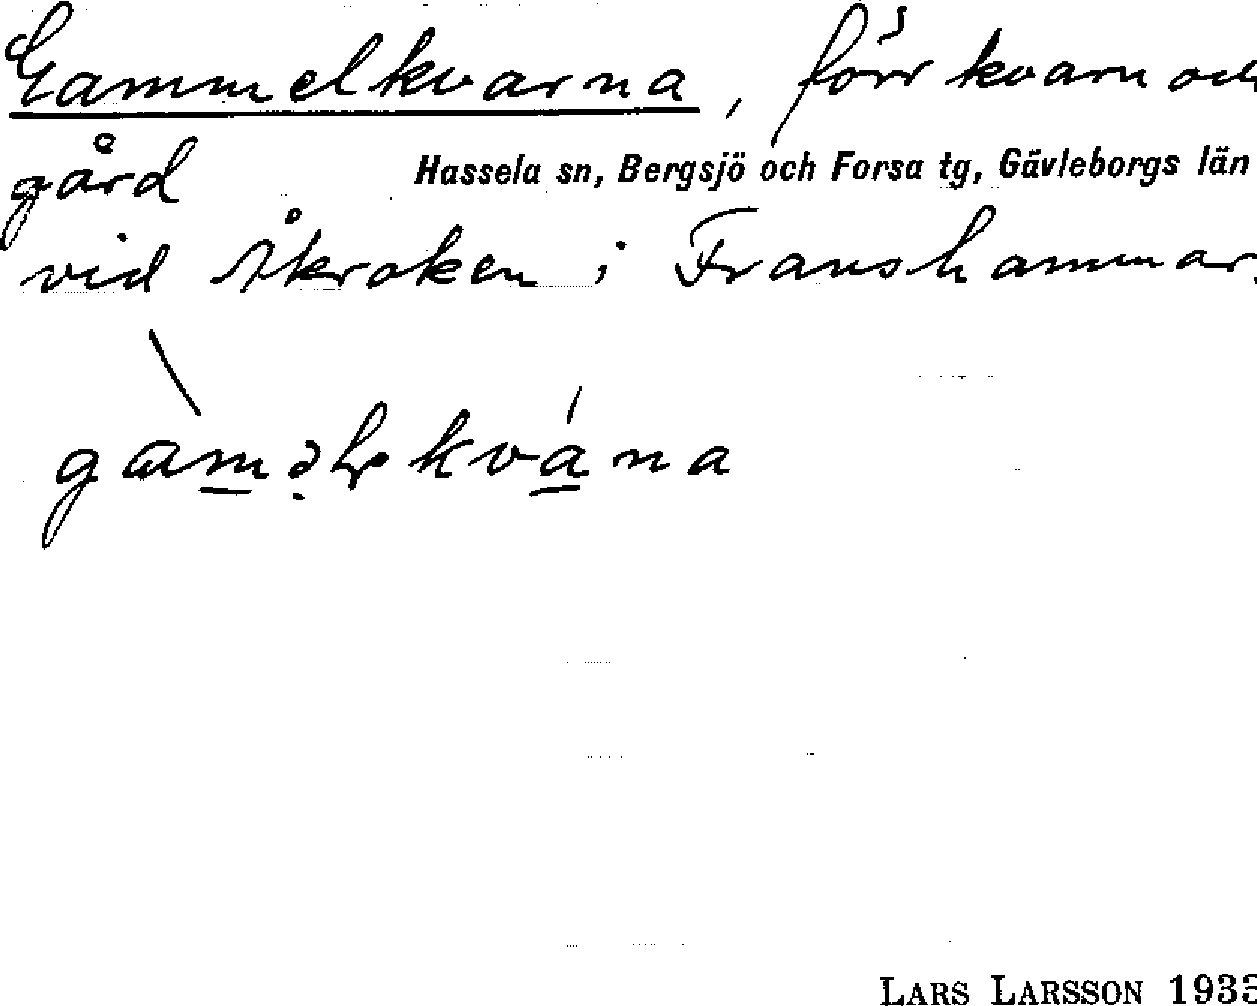 Gammelkvarna, förr kvarn och
gård
Hassela sn, Bergsjö och Forsa tg, Gävleborgs län
vid Åkroken i Franshammar.
LARS LARSSON